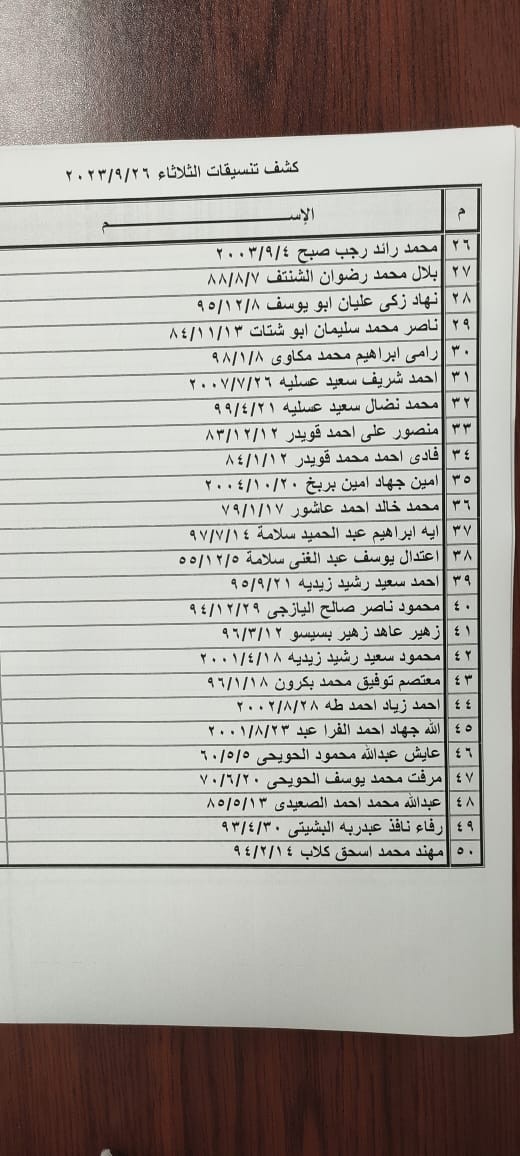 كشف تنسيقات الثلاثاء ٢٠٢٣/٩/٢٦
م الإســــــم
٢٦ محمد رائد رجب صبح ٢٠٠٣/٩/٤
٢٧ بلال محمد رضوان الشنتف ٨٨/٨/٧
٢٨ نهاد زكى عليان ابو يوسف ٩٥/١٢/٨
٢٩ ناصر محمد سليمان ابو شتات ٨٤/١١/١٣
٣٠ رامى ابراهيم محمد مكاوى ٩٨/١/٨
٣١ احمد شريف سعيد عسليه ٢٠٠٧/٧/٢٦
٣٢ محمد نضال سعيد عسليه ٩٩/٤/٢١
٣٣ منصور على احمد قويدر ٨٣/١٢/١٢
٣٤ فادى احمد محمد قويدر ٨٤/١/١٢
٣٥ امين جهاد امين بربخ ٢٠٠٤/١٠/٢٠
٣٦ محمد خالد احمد عاشور ٧٩/١/١٧
٣٧ ايه ابراهيم عبد الحميد سلامة ٩٧/٧/١٤
٣٨ اعتدال يوسف عبد الغنى سلامة ٥٥/١٢/٥
٣٩ احمد سعيد رشيد زيديه ٩٥/٩/٢١
٤٠ محمود ناصر صالح اليازجى ٩٤/١٢/٢٩
٤١ زهير عاهد زهير بسيسو ٩٦/٣/١٢
٤٢ محمود سعيد رشيد زيديه ٢٠٠١/٤/١٨
٤٣ معتصم توفيق محمد بكرون ٩٦/١/١٨
٤٤ احمد زياد احمد طه ٢٠٠٢/٨/٢٨
٤٥ الله جهاد احمد الفرا عبد ٢٠٠١/٨/٢٣
٤٦ عايش عبدالله محمود الحويحى ٦٠/٥/٥
٤٧ مرفت محمد يوسف الحويحى ٧٠/٦/٢٠
٤٨ عبدالله محمد احمد الصعيدى ٨٥/٥/١٣
٤٩ رفاء نافذ عبدربه البشيتى ٩٣/٤/٣٠
٥٠ مهند محمد اسحق كلاب ٩٤/٢/١٤